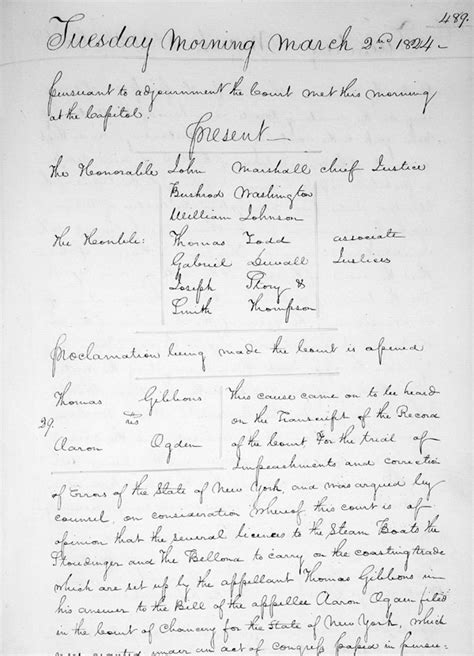 489.
Tuesday Morning March 2nd 1824—
Pursuant to adjournment the Court met this morning
at the Capitol.
Present—
The Honorable John Marshall chief Justice
Bushrod Washington
William Johnson
The Honble: Thomas Todd associate
Gabriel Duvall Justices
Joseph Story &
Smith Thompson
Proclamation being made the Court is opened
Thomas Gibbons This cause came on to be heard
vs on the Transcript of the Record
29. of the Court for the trial of
Aaron Ogden Impeachments and correction
of Errors of the State of New York, and was argued by
counsel, on consideration whereof this court is of
opinion that the several licences to the Steam Boats the
Stoudinger and The Bellona to carry on the coasting trade
which are set up by the appellant Thomas Gibbons in
his answer to the Bill of the appellee Aaron Ogden filed
in the Court of Chancery for the State of New York, which
were granted under an act of Congress passed in pursu-